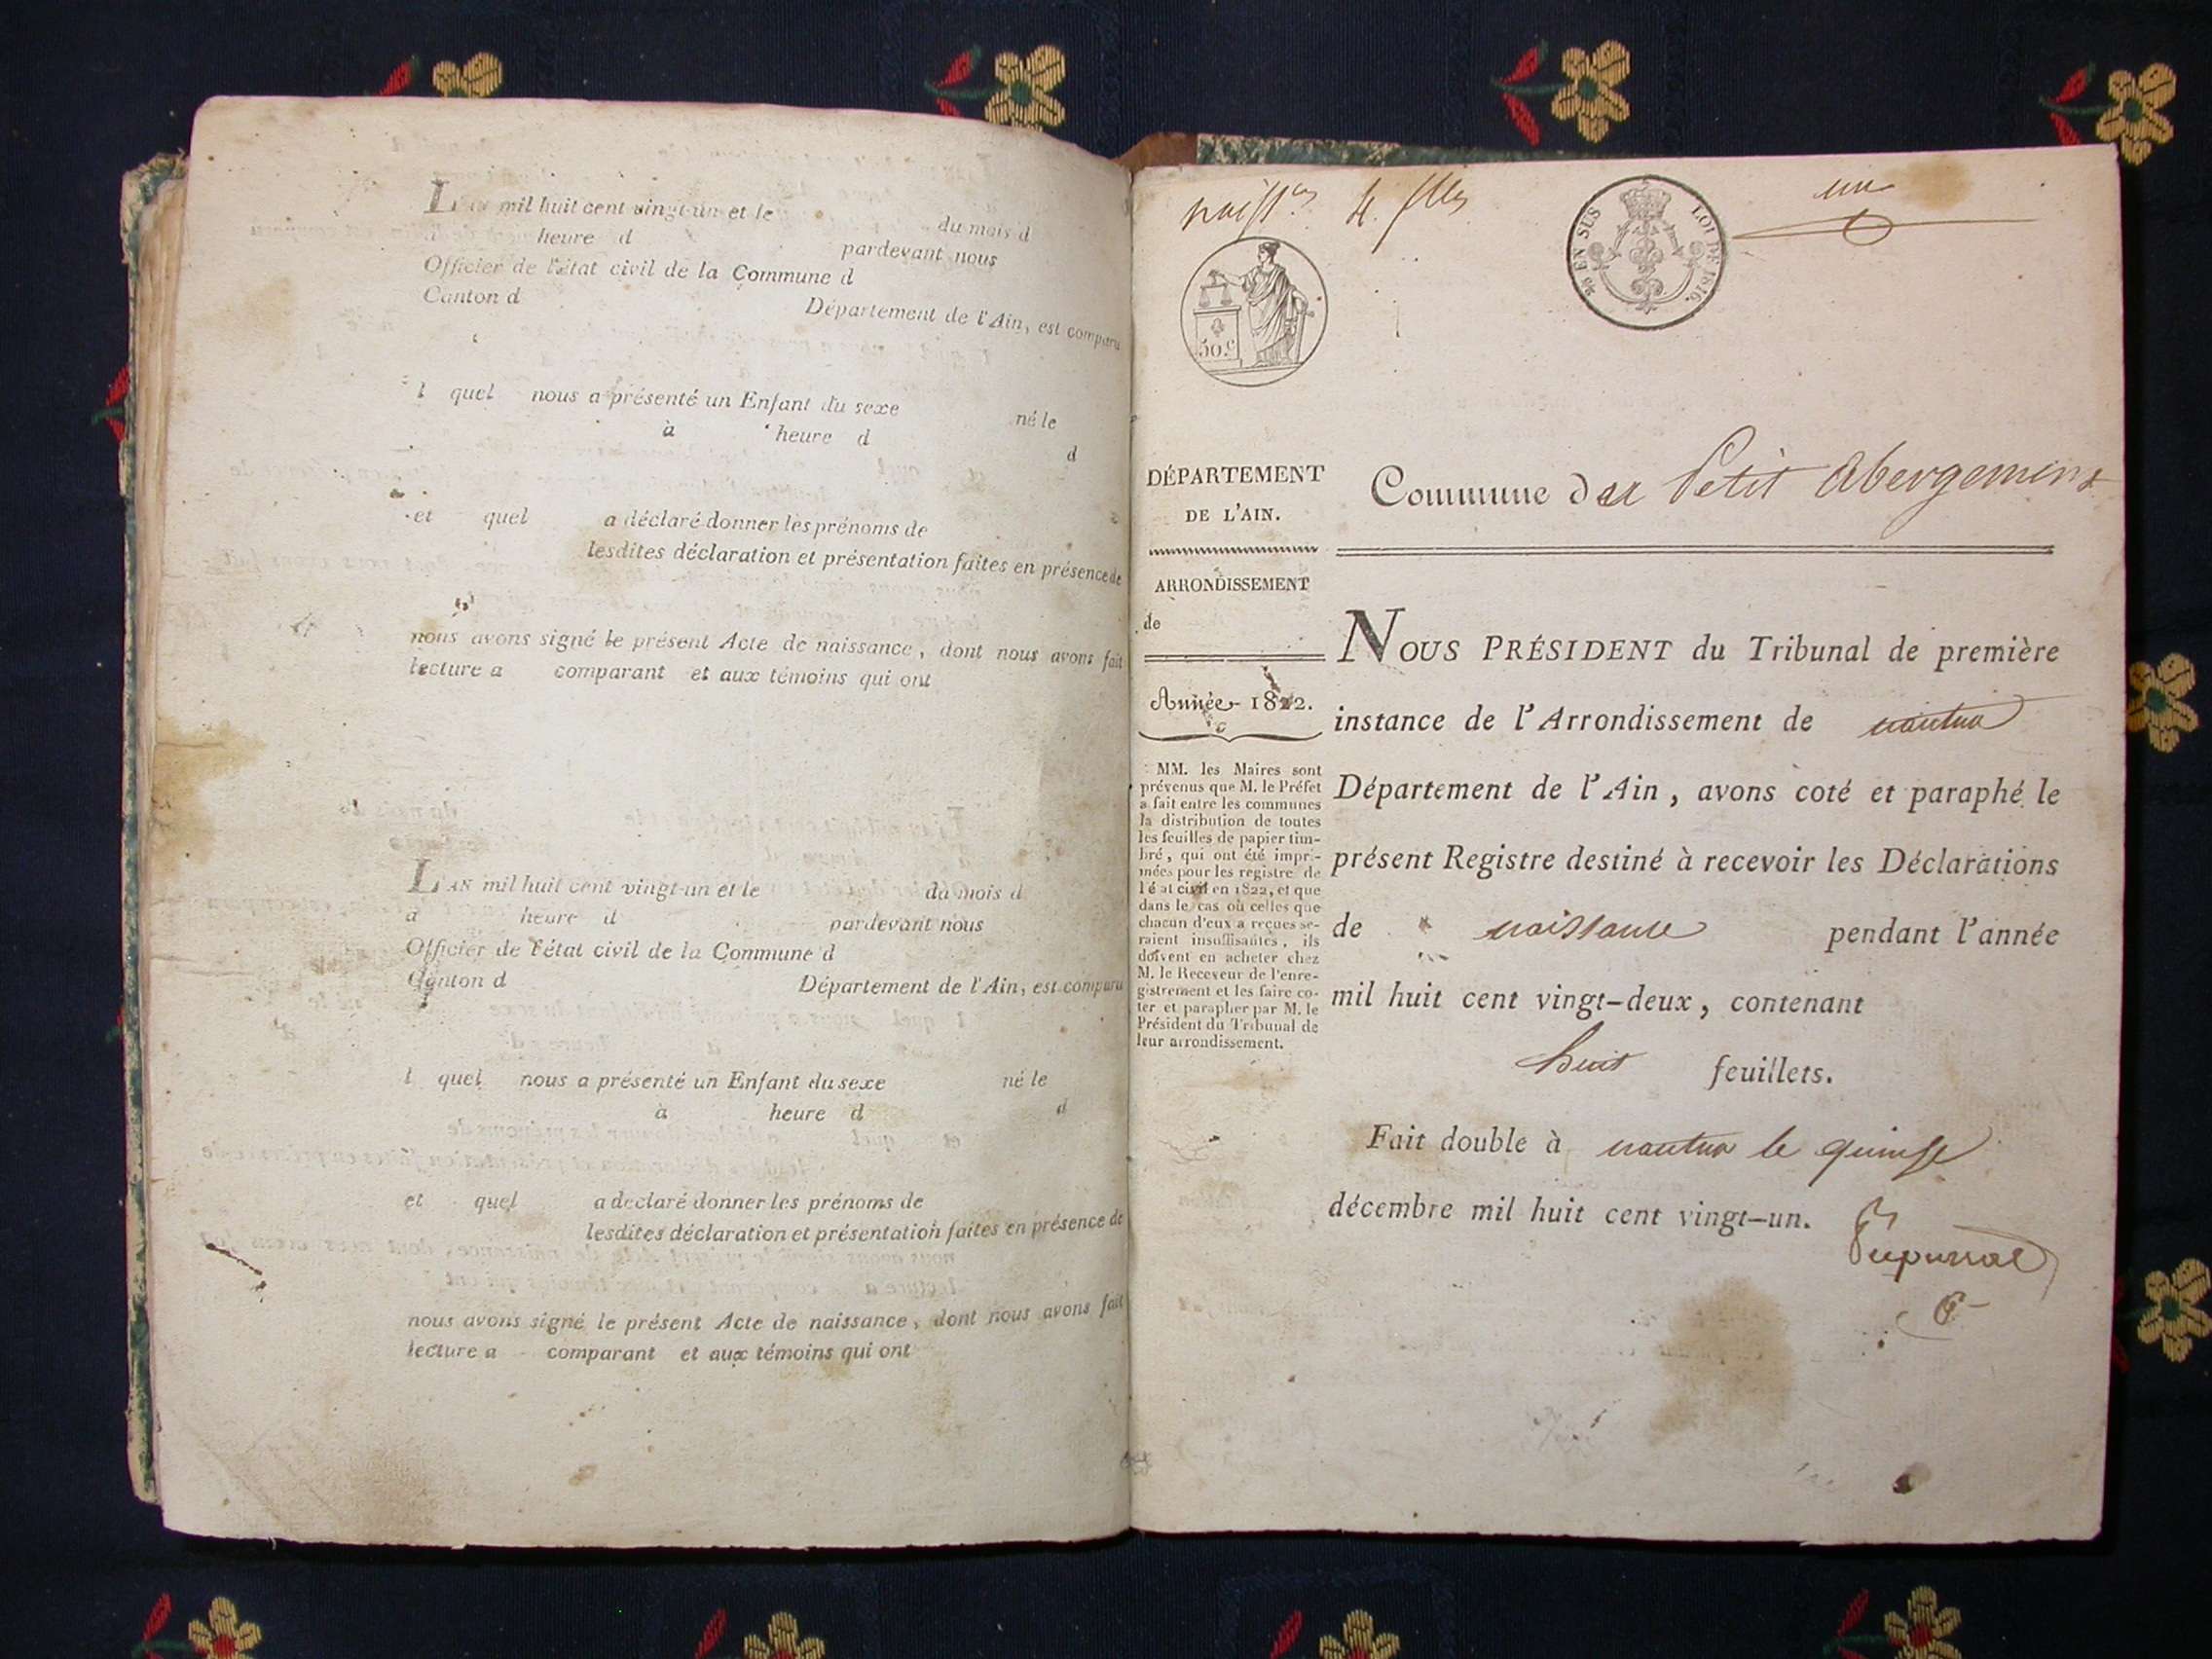 L'AN mil huit cent vingt-un et le du mois d
à heure d pardevant nous
Officier de l'état civil de la Commune d
Canton d Département de l'Ain, est comparu
l quel nous a présenté un Enfant du sexe né le
à heure d d
et quel a déclaré donner les prénoms de
lesdites déclaration et présentation faites en présence de
nous avons signé le présent Acte de naissance, dont nous avons fait
lecture a comparant et aux témoins qui ont
L'AN mil huit cent vingt-un et le du mois d
à heure d pardevant nous
Officier de l'état civil de la Commune d
Canton d Département de l'Ain, est comparu
l quel nous a présenté un Enfant du sexe né le
à heure d d
et quel a declaré donner les prénoms de
lesdites déclaration et présentation faites en présence de
nous avons signé le présent Acte de naissance, dont nous avons fait
lecture a comparant et aux témoins qui ont
un
EN SUS LOI DE 1816.
50.c
DÉPARTEMENT
DE L'AIN.
ARRONDISSEMENT
de
Année 1822.
MM. les Maires sont
prévenus que M. le Préfet
a fait entre les communes
la distribution de toutes
les feuilles de papier tim-
bré, qui ont été impri-
mées pour les registre de
l'é at civil en 1822, et que
dans le cas où celles que
chacun d'eux a reçues se-
raient insuffisantes, ils
doivent en acheter chez
M. le Receveur de l'enre-
gistrement et les faire co-
ter et parapher par M. le
Président du Tribunal de
leur arrondissement.
Commune du Petit Abergement
NOUS PRÉSIDENT du Tribunal de première
instance de l'Arrondissement de nantua
Département de l'Ain, avons coté et paraphé le
présent Registre destiné à recevoir les Déclarations
de naissance pendant l'année
mil huit cent vingt-deux, contenant
huit feuillets.
Fait double à nantua le quinze
décembre mil huit cent vingt-un.